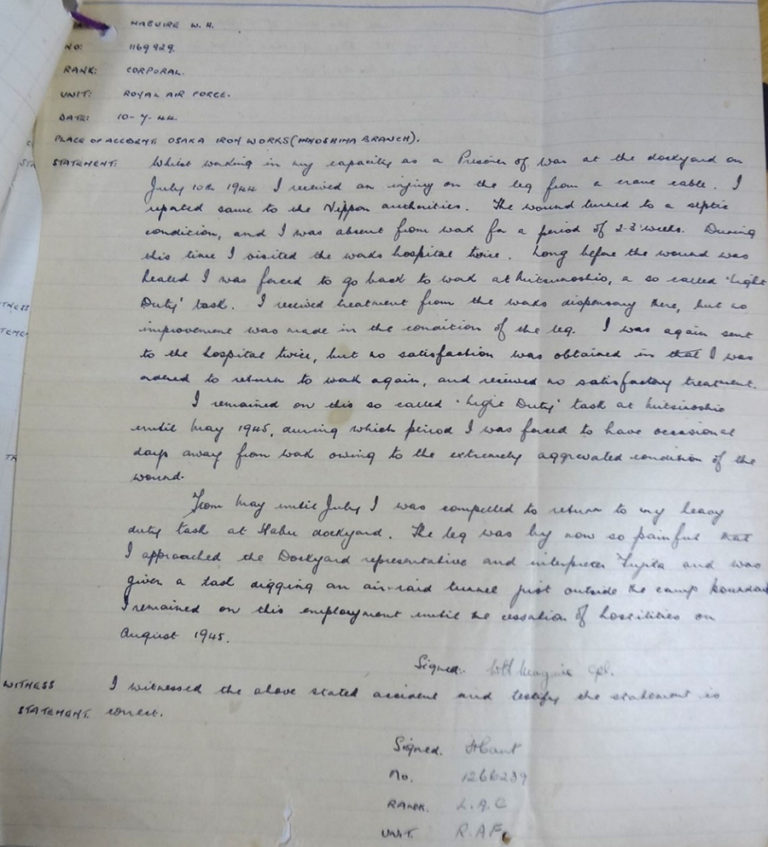 MAGUIRE W. H.
NO: 1169929.
RANK: CORPORAL.
UNIT: ROYAL AIR FORCE.
DATE: 10-7-44.
PLACE OF ACCIDENT: OSAKA IRON WORKS (INNOSHIMA BRANCH).
STATEMENT: Whilst working in my capacity as a Prisoner of War at the dockyard on
July 10th 1944 I received an injury on the leg from a crane cable. I
reported same to the Nippon authorities. The wound turned to a septic
condition, and I was absent from work for a period of 2-3 weeks. During
this time I visited the works hospital twice. Long before the wound was
healed I was forced to go back to work at , a so called 'Light
Duty' task. I received treatment from the works dispensary there, but no
improvement was made in the condition of the leg. I was again sent
to the hospital twice, but no satisfaction was obtained in that I was
ordered to return to work again, and received no satisfactory treatment.
I remained on this so called 'Light Duty' task at
until May 1945, during which period I was forced to have occasional
days away from work owing to the extremely aggravated condition of the
wound.
From May until July I was compelled to return to my heavy
duty task at Habu dockyard. The leg was by now so painful that
I approached the Dockyard representative and interpreter Fujita and was
given a task digging an air-raid tunnel just outside the camp boundary
I remained on this employment until the cessation of hostilities on
August 1945.
Signed. WH Maguire Cpl.
WITNESS I witnessed the above stated accident and testify the statement is
STATEMENT. correct.
Signed.
No. 1266239
RANK. L.A.C
UNIT. R.A.F.